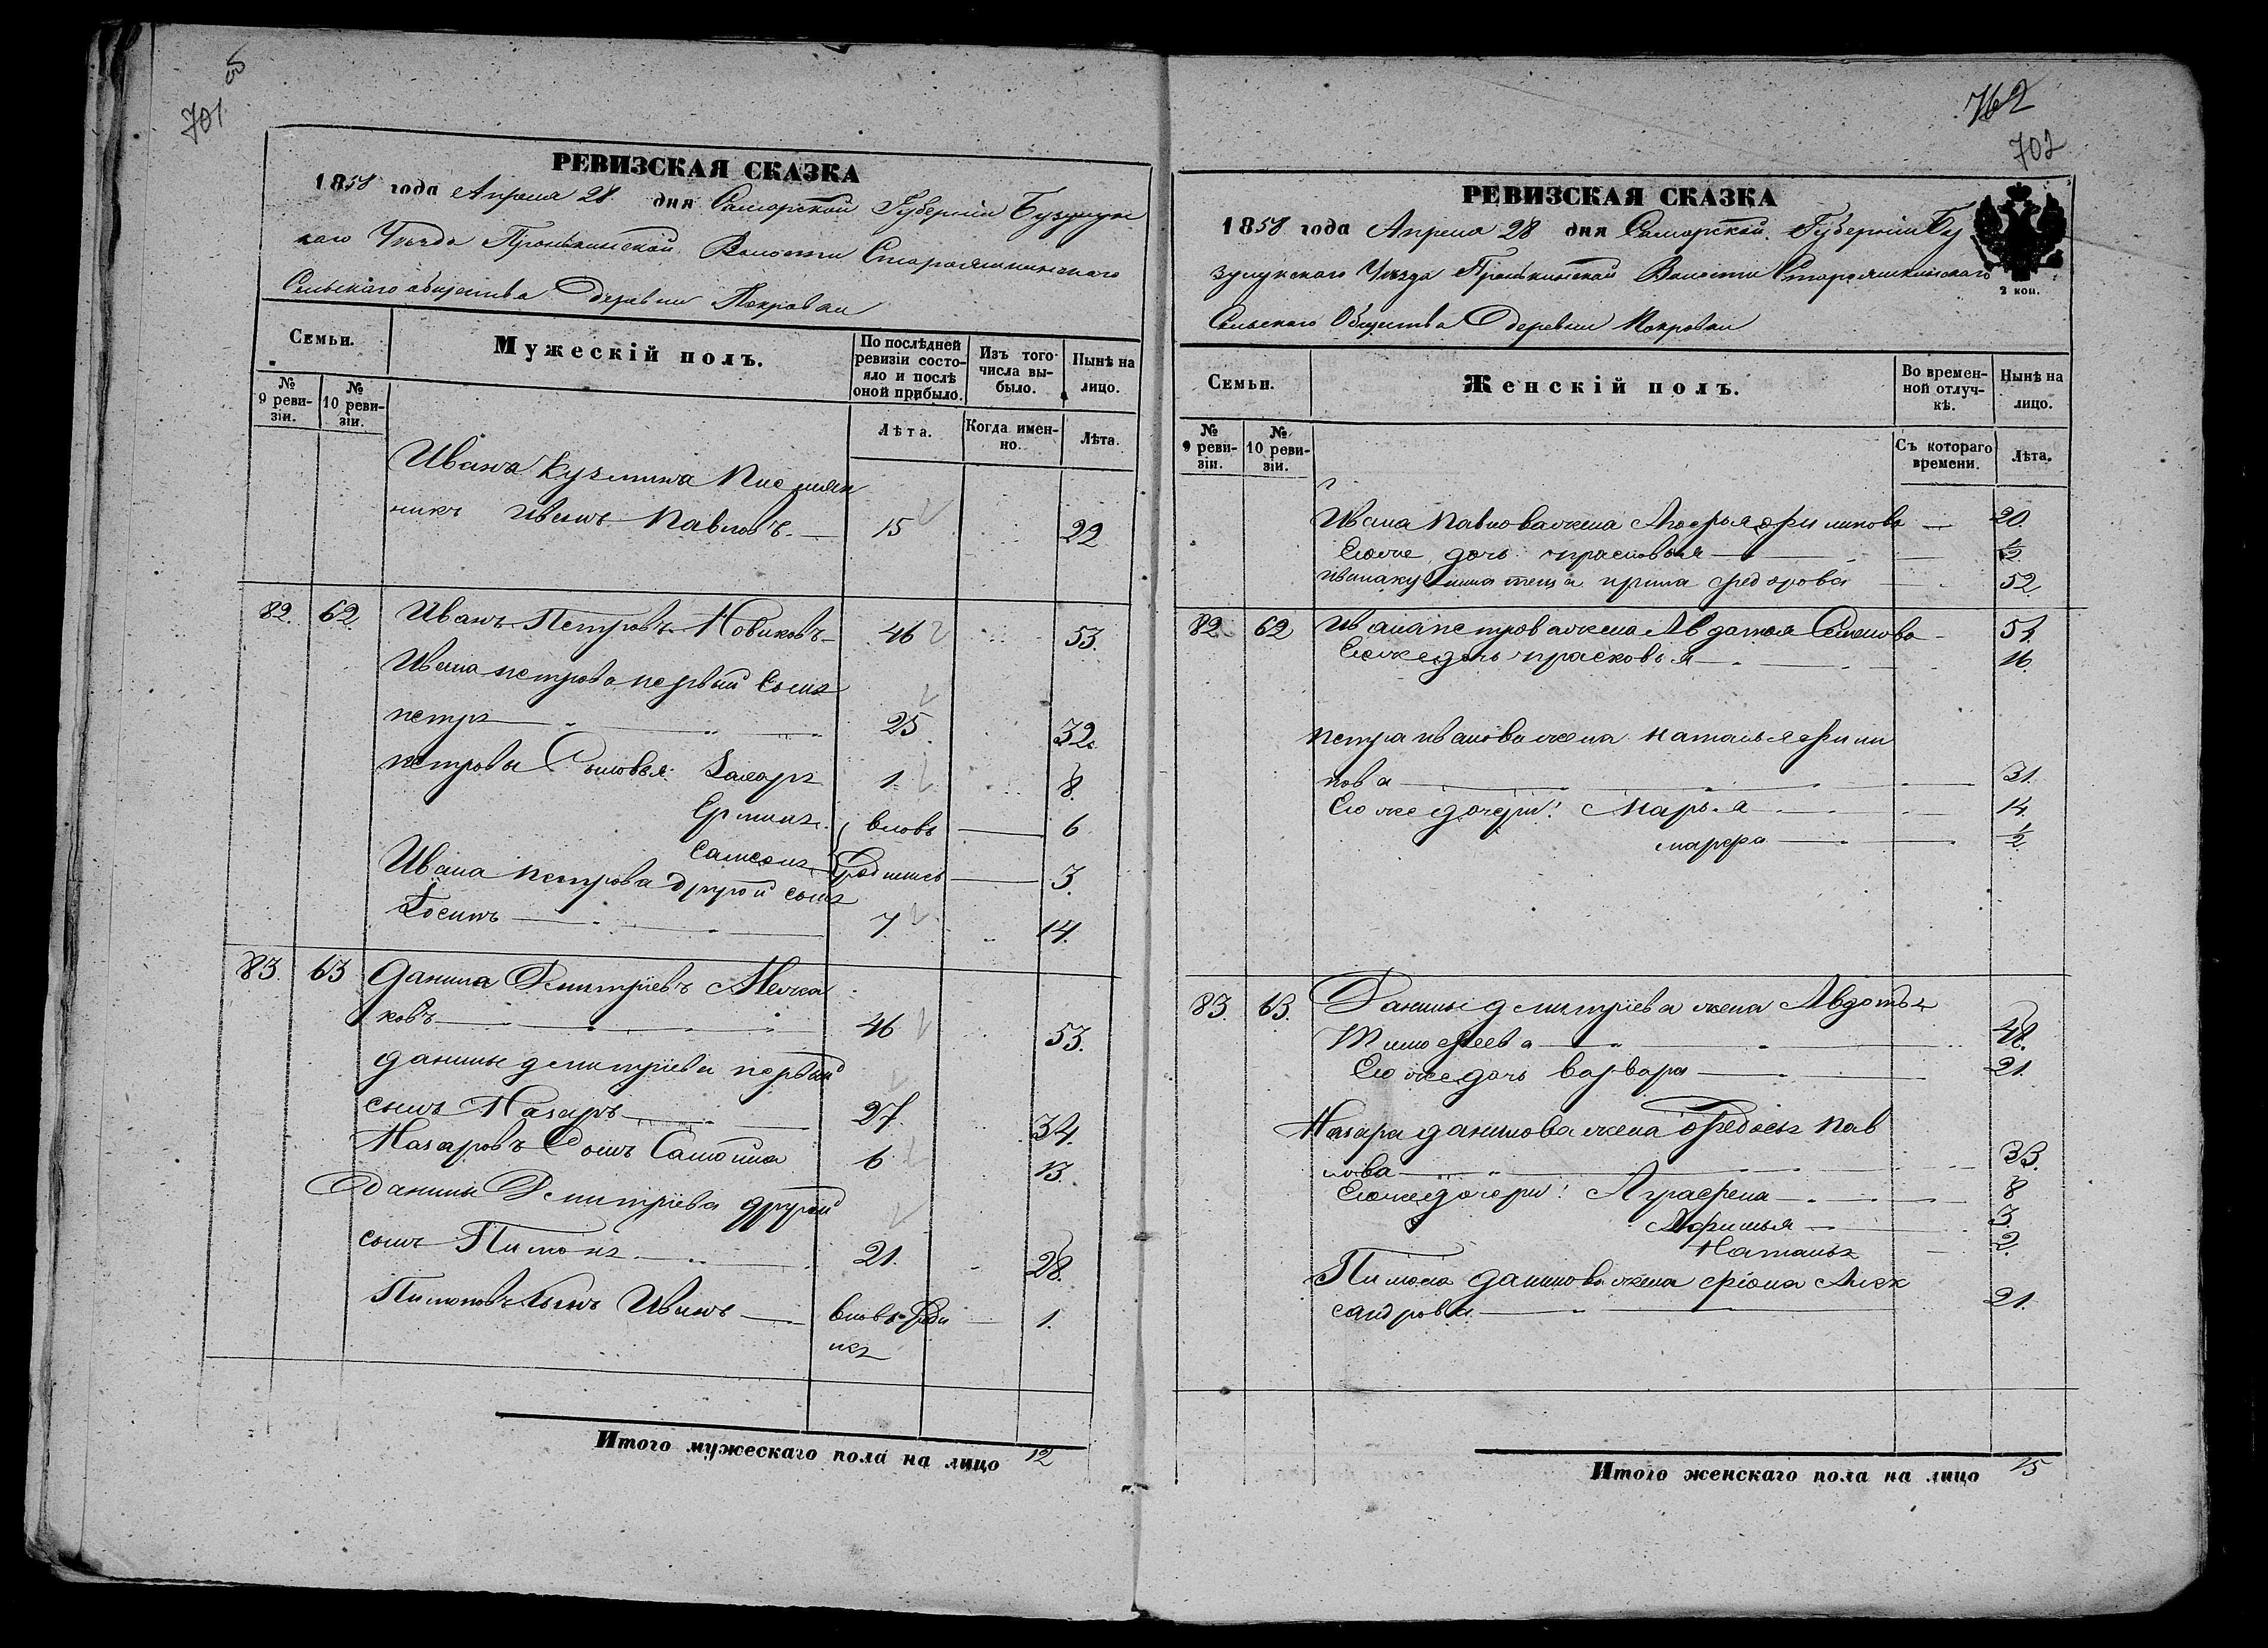 701
РЕВИЗСКАЯ СКАЗКА
1858 года Апреля 28 дня Самарской Губернiи Бузулук
скаго Уезда Пронькинской Волости Старояшкинскаго
Сельскаго общества деревни Покровки
Семьи.
Мужескiй полъ.
По послѣдней ревизiи состояло и послѣ оной прибыло.
Изъ того числа выбыло.
Нынѣ на лицо.
№ 9 ревизiи.
№ 10 ревизiи.
Лѣта.
Когда именно.
Лѣта.
Ивана Кузмина
никъ Иванъ Павловъ 15 22
82. 62. Иванъ Петровъ Новиковъ 46 53.
Ивана петрова первый Сынъ
петръ 25 32.
петровы Сыновья Захаръ 1 8.
вновь 6
Самсонъ родились 3.
Ивана петрова другой сынъ
Iосипъ 7. 14.
83. 63 Данила Дмитрiевъ
ковъ 46 53.
данилы дмитрiева первый
сынъ Назаръ 27. 34.
Назаровъ Сынъ Самойла 6 13.
Данилы Дмитрiева другой
сынъ Пимонъ 21. 28.
Пимоновъ Сынъ Иванъ вновь роди 1.
лся
Итого мужескаго пола на лицо 12
762
702
РЕВИЗСКАЯ СКАЗКА
1858 года Апреля 28 дня Самарской Губернiи Бу
зулукскаго Уезда Пронькинской Волости Старояшкинскаго
2 коп.
Сельскаго Общества деревни Покровки
Семьи.
Женскiй полъ.
Во временной отлучкѣ.
Нынѣ на лицо.
№ 9 ревизiи.
№ 10 ревизiи.
Съ котораго времени.
Лѣта.
Ивана Павлова жена филипова 20.
Ево же дочь прасковья 1/2
ивана кузмина теща ирина федорова 52
82. 62 Ивана петрова жена Авдотья Семенова
Ево же дочь прасковья 16.
петра иванова жена наталья фили
пова 31.
Ево же дочери: Марья 14.
марфа 1/2
83. 63. Данилы дмитрiева жена Авдотья
Тимофеева 48.
Ево же дочь варвара 21.
Назара данилова жена Федосья пав
лова 33.
Ево же дочери: Аграфена 8
Афимья 3.
Наталья 2.
Пимона данилова жена фiона Алек
сандрова 21.
Итого женскаго пола на лицо 15